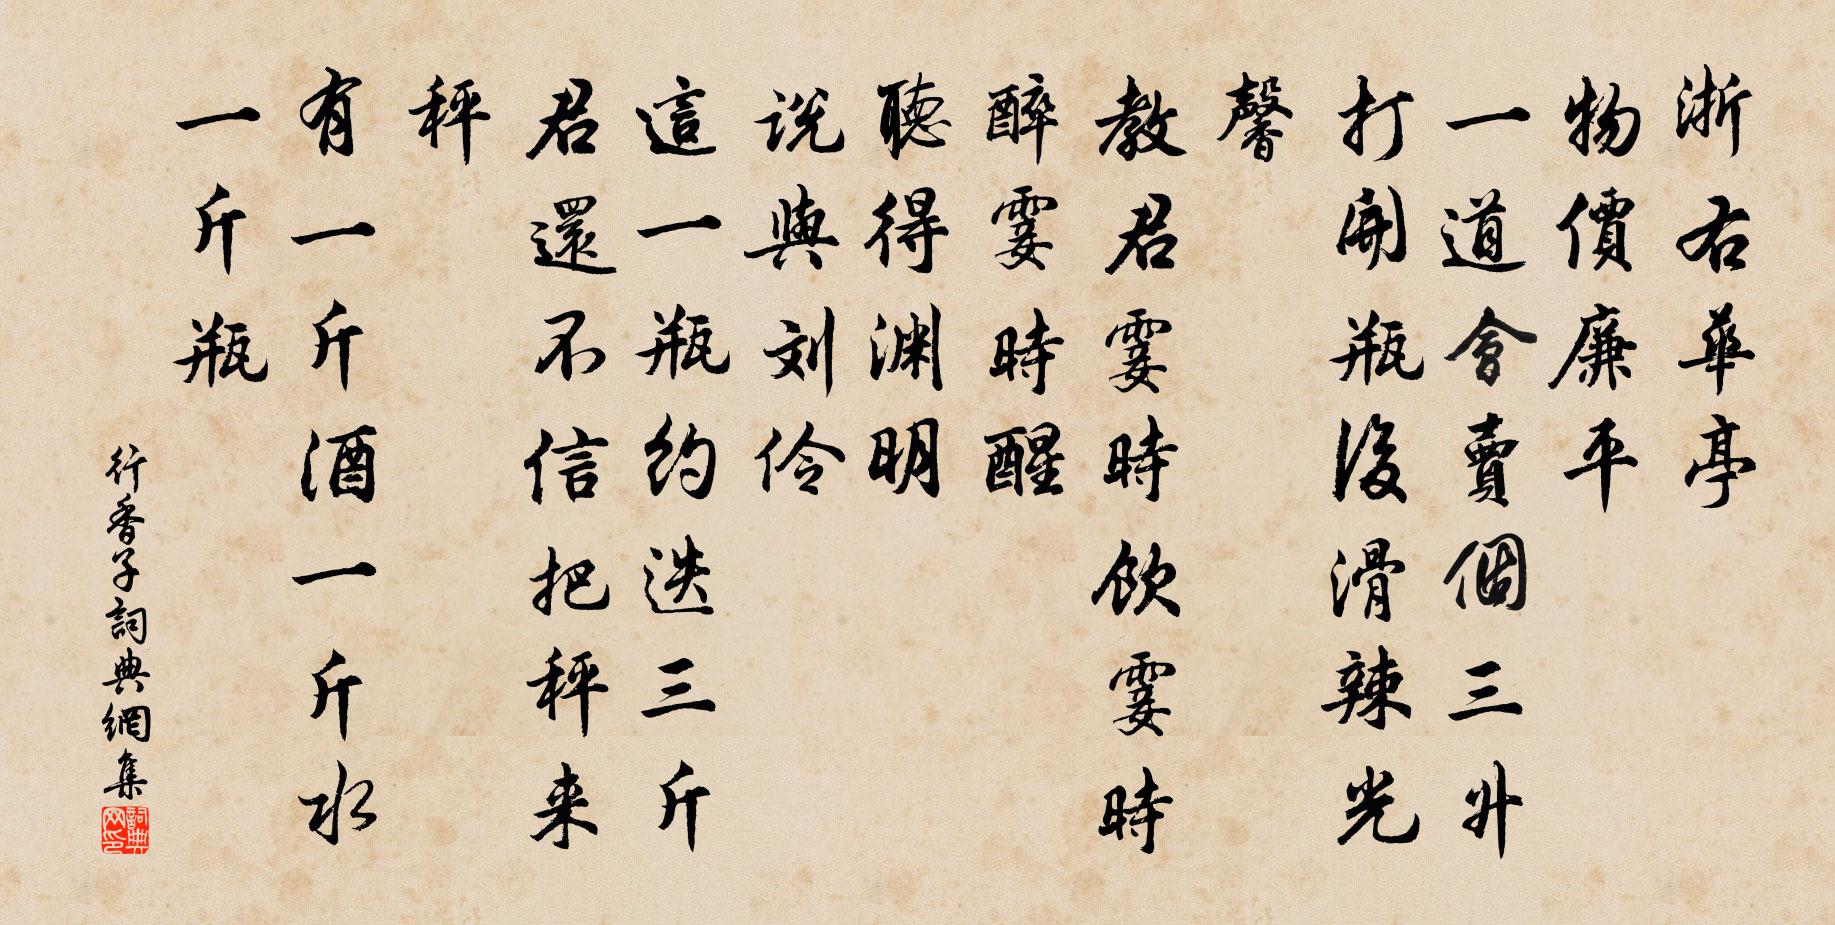 浙右華亭
物價廉平
一道會賣個三升
打開瓶後滑辣光
馨
教君霎時飲霎時
醉霎時醒
聽得淵明
說與刘伶
這一瓶約迭三斤
君還不信把秤来
秤
有一斤酒一斤水
一斤瓶
行香子詞典網集
詞典网印